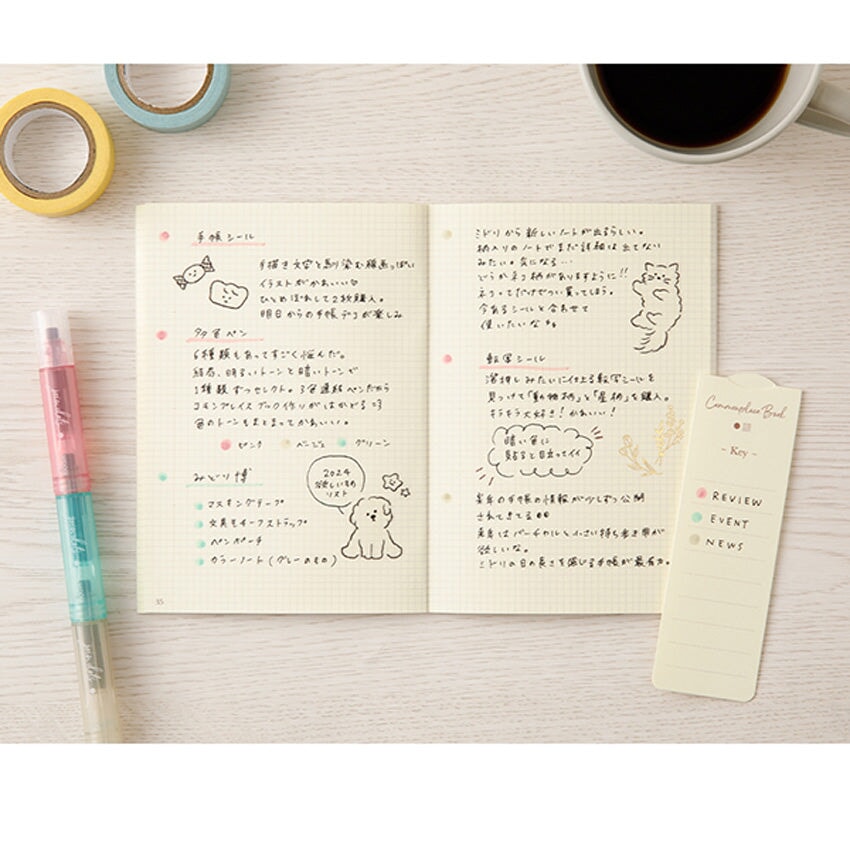 手帳シール
手描き文字と馴染む線画っぽい
イラストがかわいい♡
ひとめぼれして2枚購入。
明日からの手帳デコが楽しみ
多色ペン
6種類もあってすごく悩んだ。
結局、明るいトーンと暗いトーンで
1種類ずつセレクト。3色連結ペンだから
コモンプレイスブック作りがはかどる
色のトーンもまとまってかわいい。
ピンク ベージュ グリーン
みどり博
マスキングテープ
文具モチーフストラップ
ペンポーチ
カラーノート(グレーのもの)
2024
欲しいもの
リスト
35
ミドリから新しいノートが出るらしい。
柄入りのノートでまだ詳細は出てない
みたい。気になる…
どうかネコ柄がありますように!!
ネコってだけでつい買ってしまう。
今あるシールと合わせて
使いたいな
転写シール
箔押しみたいに仕上る転写シールを
見つけて「動物柄」と「星柄」を購入。
キラキラ大好き!かわいい!
暗い色に
貼ると目立ってイイ
来年の手帳の情報が少しずつ公開
されてきてる
来年はバーチカルと小さい持ち歩き用が
欲しいな。
ミドリの日の長さを感じる手帳が最有力。
Commonplace Book
- Key -
REVIEW
EVENT
NEWS